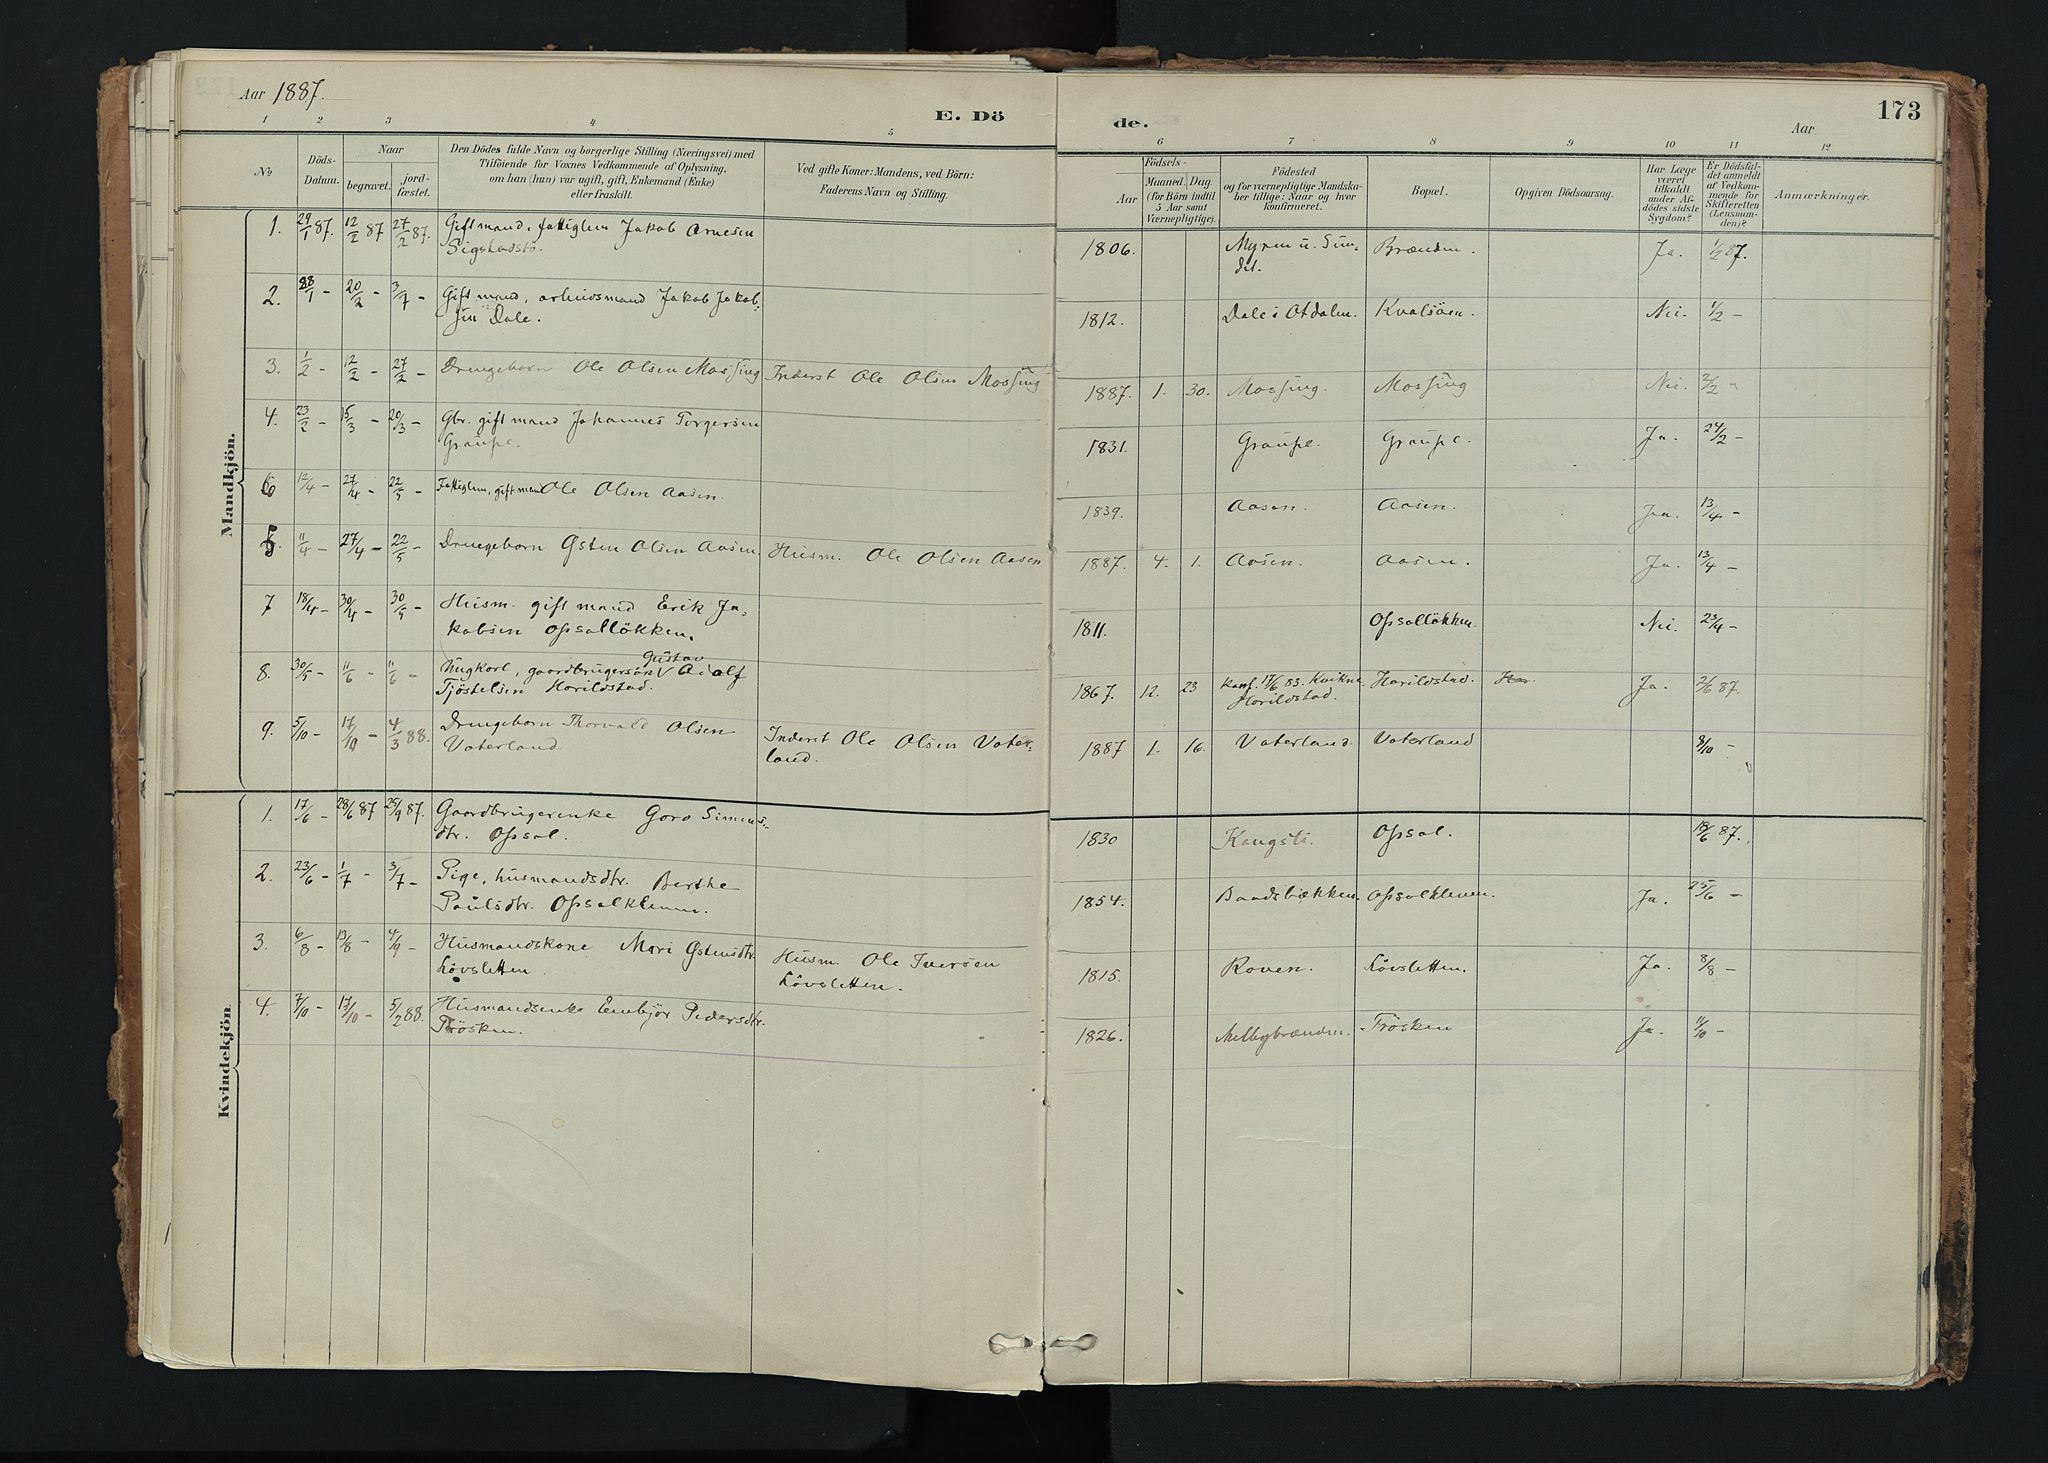 Aar 1887.
E. Dö
de.
173
Aar
1 2 3 4 5 6 7 8 9 10 11 12
No
Döds-
Datum.
Naar
begravet.
jord-
fæstet.
Den Dödes fulde Navn og borgerlige Stilling (Næringsvei) med
Tilföiende for Voxnes Vedkommende af Oplysning,
om han (hun) var ugift, gift, Enkemand (Enke)
eller fraskilt.
Ved gifte Koner: Mandens, ved Börn:
Faderens Navn og Stilling.
Födsels-
Aar
Maaned. Dag.
(for Börn indtil
5 Aar samt
Værnepligtige).
Födested
og for værnepligtige Mandska-
ber tillige: Naar og hvor
konfirmeret.
Bopæl.
Opgiven Dödsaarsag.
Har Læge
været
tilkaldt
under Af-
dödes sidste
Sygdom?
Er Dödsfal-
det anmeldt
af Vedkom-
mende for
Skifteretten
(Lensman-
den)?
Anmærkninger.
Mandkjön.
1. 29/1 87. 12/2 87 27/2 87. Gift mand, fattiglem Jakob Arnesen
Sigstadstø. 1806. Myren u. Sun-
det. Brænden. Ja. 1/2 87.
2. 28/1 - 20/2 - 3/7 - Gift mand, arbeidsmand Jakob Jakob-
sen Dale. 1812. Dale i Otdalen. Kvalsöen. Nei. 1/2 -
3. 1/2 - 12/2 - 27/2 - Drengebarn Ole Olsen Mossing Inderst Ole Olsen Mossing 1887. 1. 30. Mossing. Mossing Nei. 2/2 -
4. 23/2 - 15/3 - 20/3 - Gbr. gift mand Johannes Torgersen
Graupe. 1831. Graupe. Graupe. Ja. 24/2 -
6 12/4 - 27/4 - 22/5 - Fattiglem, gift mand Ole Olsen Aasen. 1839. Aasen. Aasen. Ja. 13/4 -
5. 11/4 - 27/4 - 22/5 - Drengebarn Østen Olsen Aasen. Husm. Ole Olsen Aasen 1887. 4. 1. Aasen. Aasen. Ja. 13/4 -
7 18/4 - 30/4 - 30/5 - Husm. gift mand Erik Ja-
kobsen Opsalløkken. 1811. Opsalløkken. Nei. 23/4 -
8. 30/5 - 11/6 - 11/6 - Ungkarl, gaardbrugersøn Gustav Adolf
Tjøstelsen Harildstad. 1867. 12. 23 Konf. 17/6 83. Kvikne
Harildstad. Harildstad. Har. Ja. 2/6 87.
9. 5/10 - 17/10 - 4/3 88. Drengebarn Thorvald Olsen
Vaterland. Inderst Ole Olsen Vater-
land. 1887 1. 16. Vaterland. Vaterland 8/10 -
Kvindekjön
1. 17/6 - 28/6 87 25/9 87. Gaardbrugerenke Goro Simens-
dtr. Opsal. 1830 Kongsli. Opsal. 18/6 87.
2. 23/6 - 1/7 - 3/7 - Pige, husmandsdtr. Berthe
Paulsdtr. Opsalkleven. 1854. Baadsbækken. Opsalkleven. Ja. 25/6 -
3. 6/8 - 13/8 - 4/9 - Husmandskone Mari Østensdtr.
Løvsletten. Husm. Ole Iversen
Løvsletten. 1815. Roven. Løvsletten. Ja. 8/8 -
4. 7/10 - 17/10 - 5/2 88. Husmandsenke Embjør Pedersdtr.
Trøsken. 1826. Melbybrænden. Trøsken Ja. 11/10 -